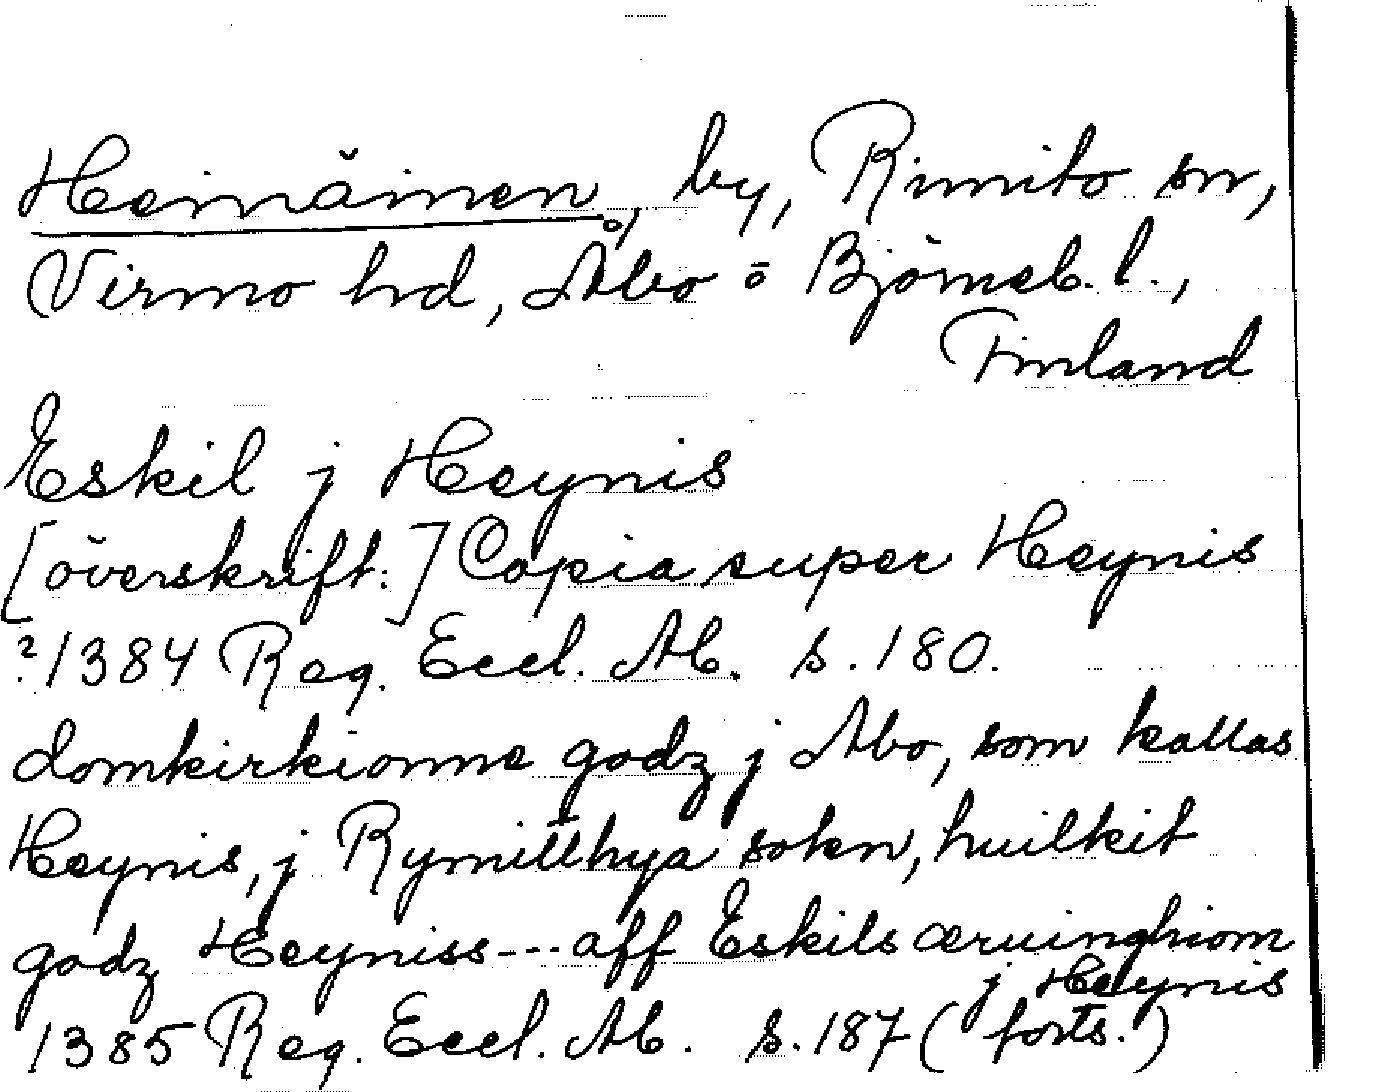 Heinäinen, by, Rimito sn,
Virmo hd, Åbo o Björneb. l.,
Finland
Eskil j Heynis
[överskrift:] Copia super Heynis
?1384 Reg. Eccl. Ab. s. 180.
domkirkionne godz j Abo, som kallas
Heynis, j Rymitthya sokn, huilkit
godz Heyniss --- aff Eskils æruinghiom
j Heynis
1385 Reg. Eccl. Ab. s. 187 (forts.)